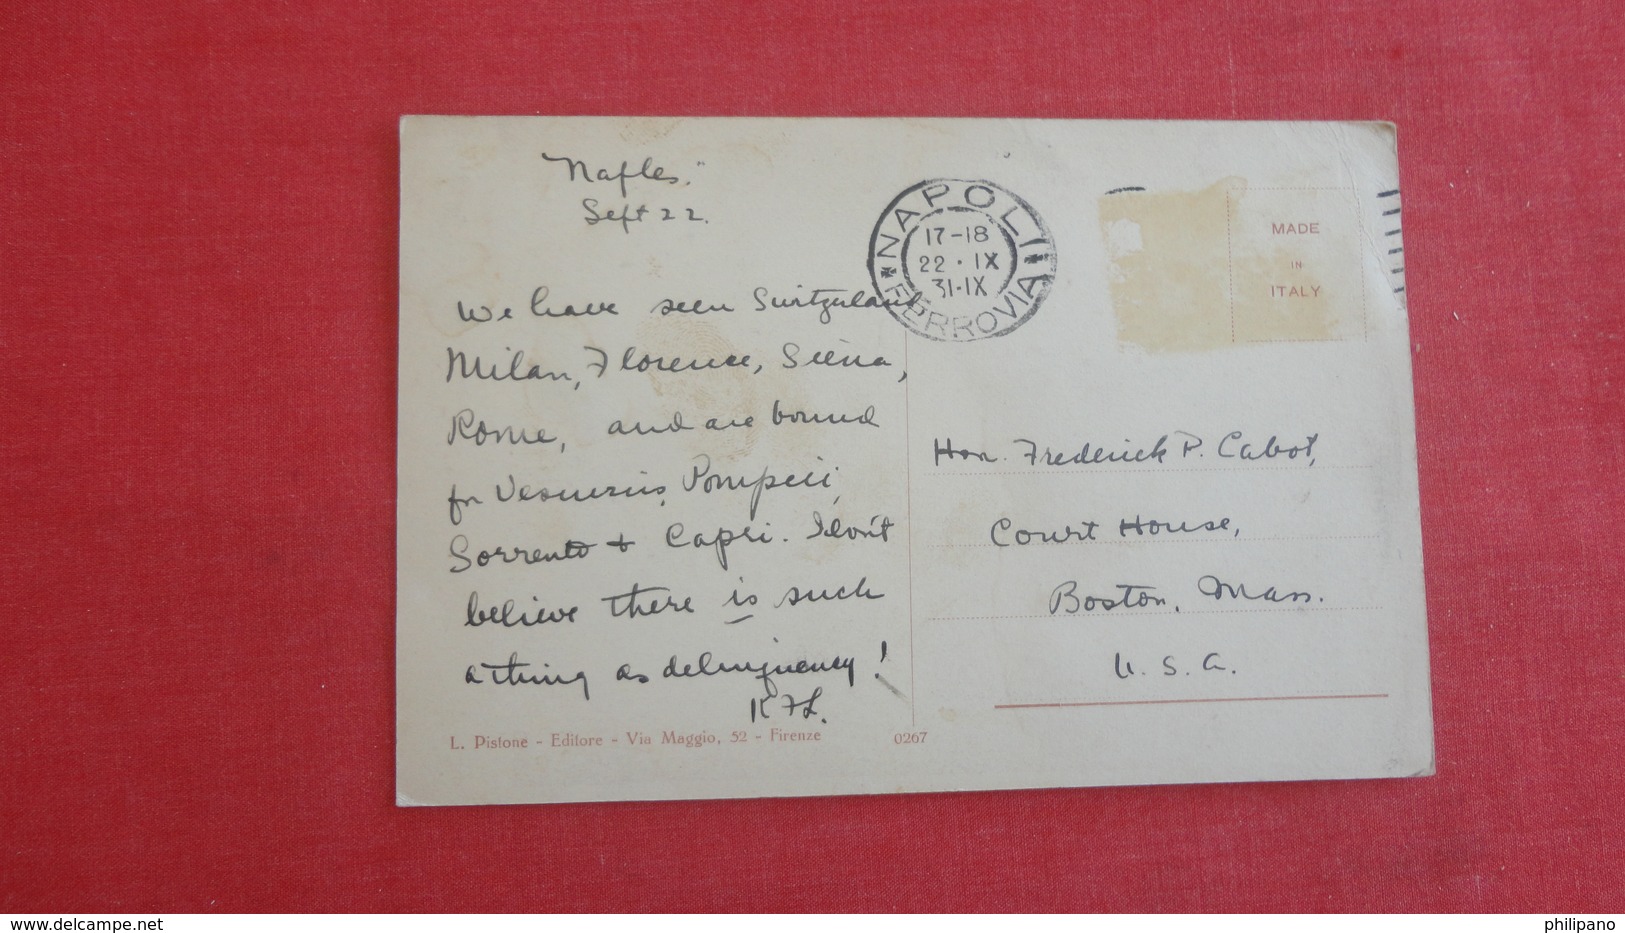 "Naples."
Sept 22.
We have seen Switzerland
Milan, Florence, Siena,
Rome, and are bound
for Vesuvius, Pompeii,
Sorrento + Capri. I don't
believe there is such
a thing as delinquency!
K F L.
L. Pistone - Editore - Via Maggio, 52 - Firenze
0267
NAPOLI
17-18
22 · IX
31·IX
FERROVIA
MADE
IN
ITALY
Hon. Frederick P. Cabot,
Court House,
Boston, Mass.
U. S. A.
delcampe.net
philipano